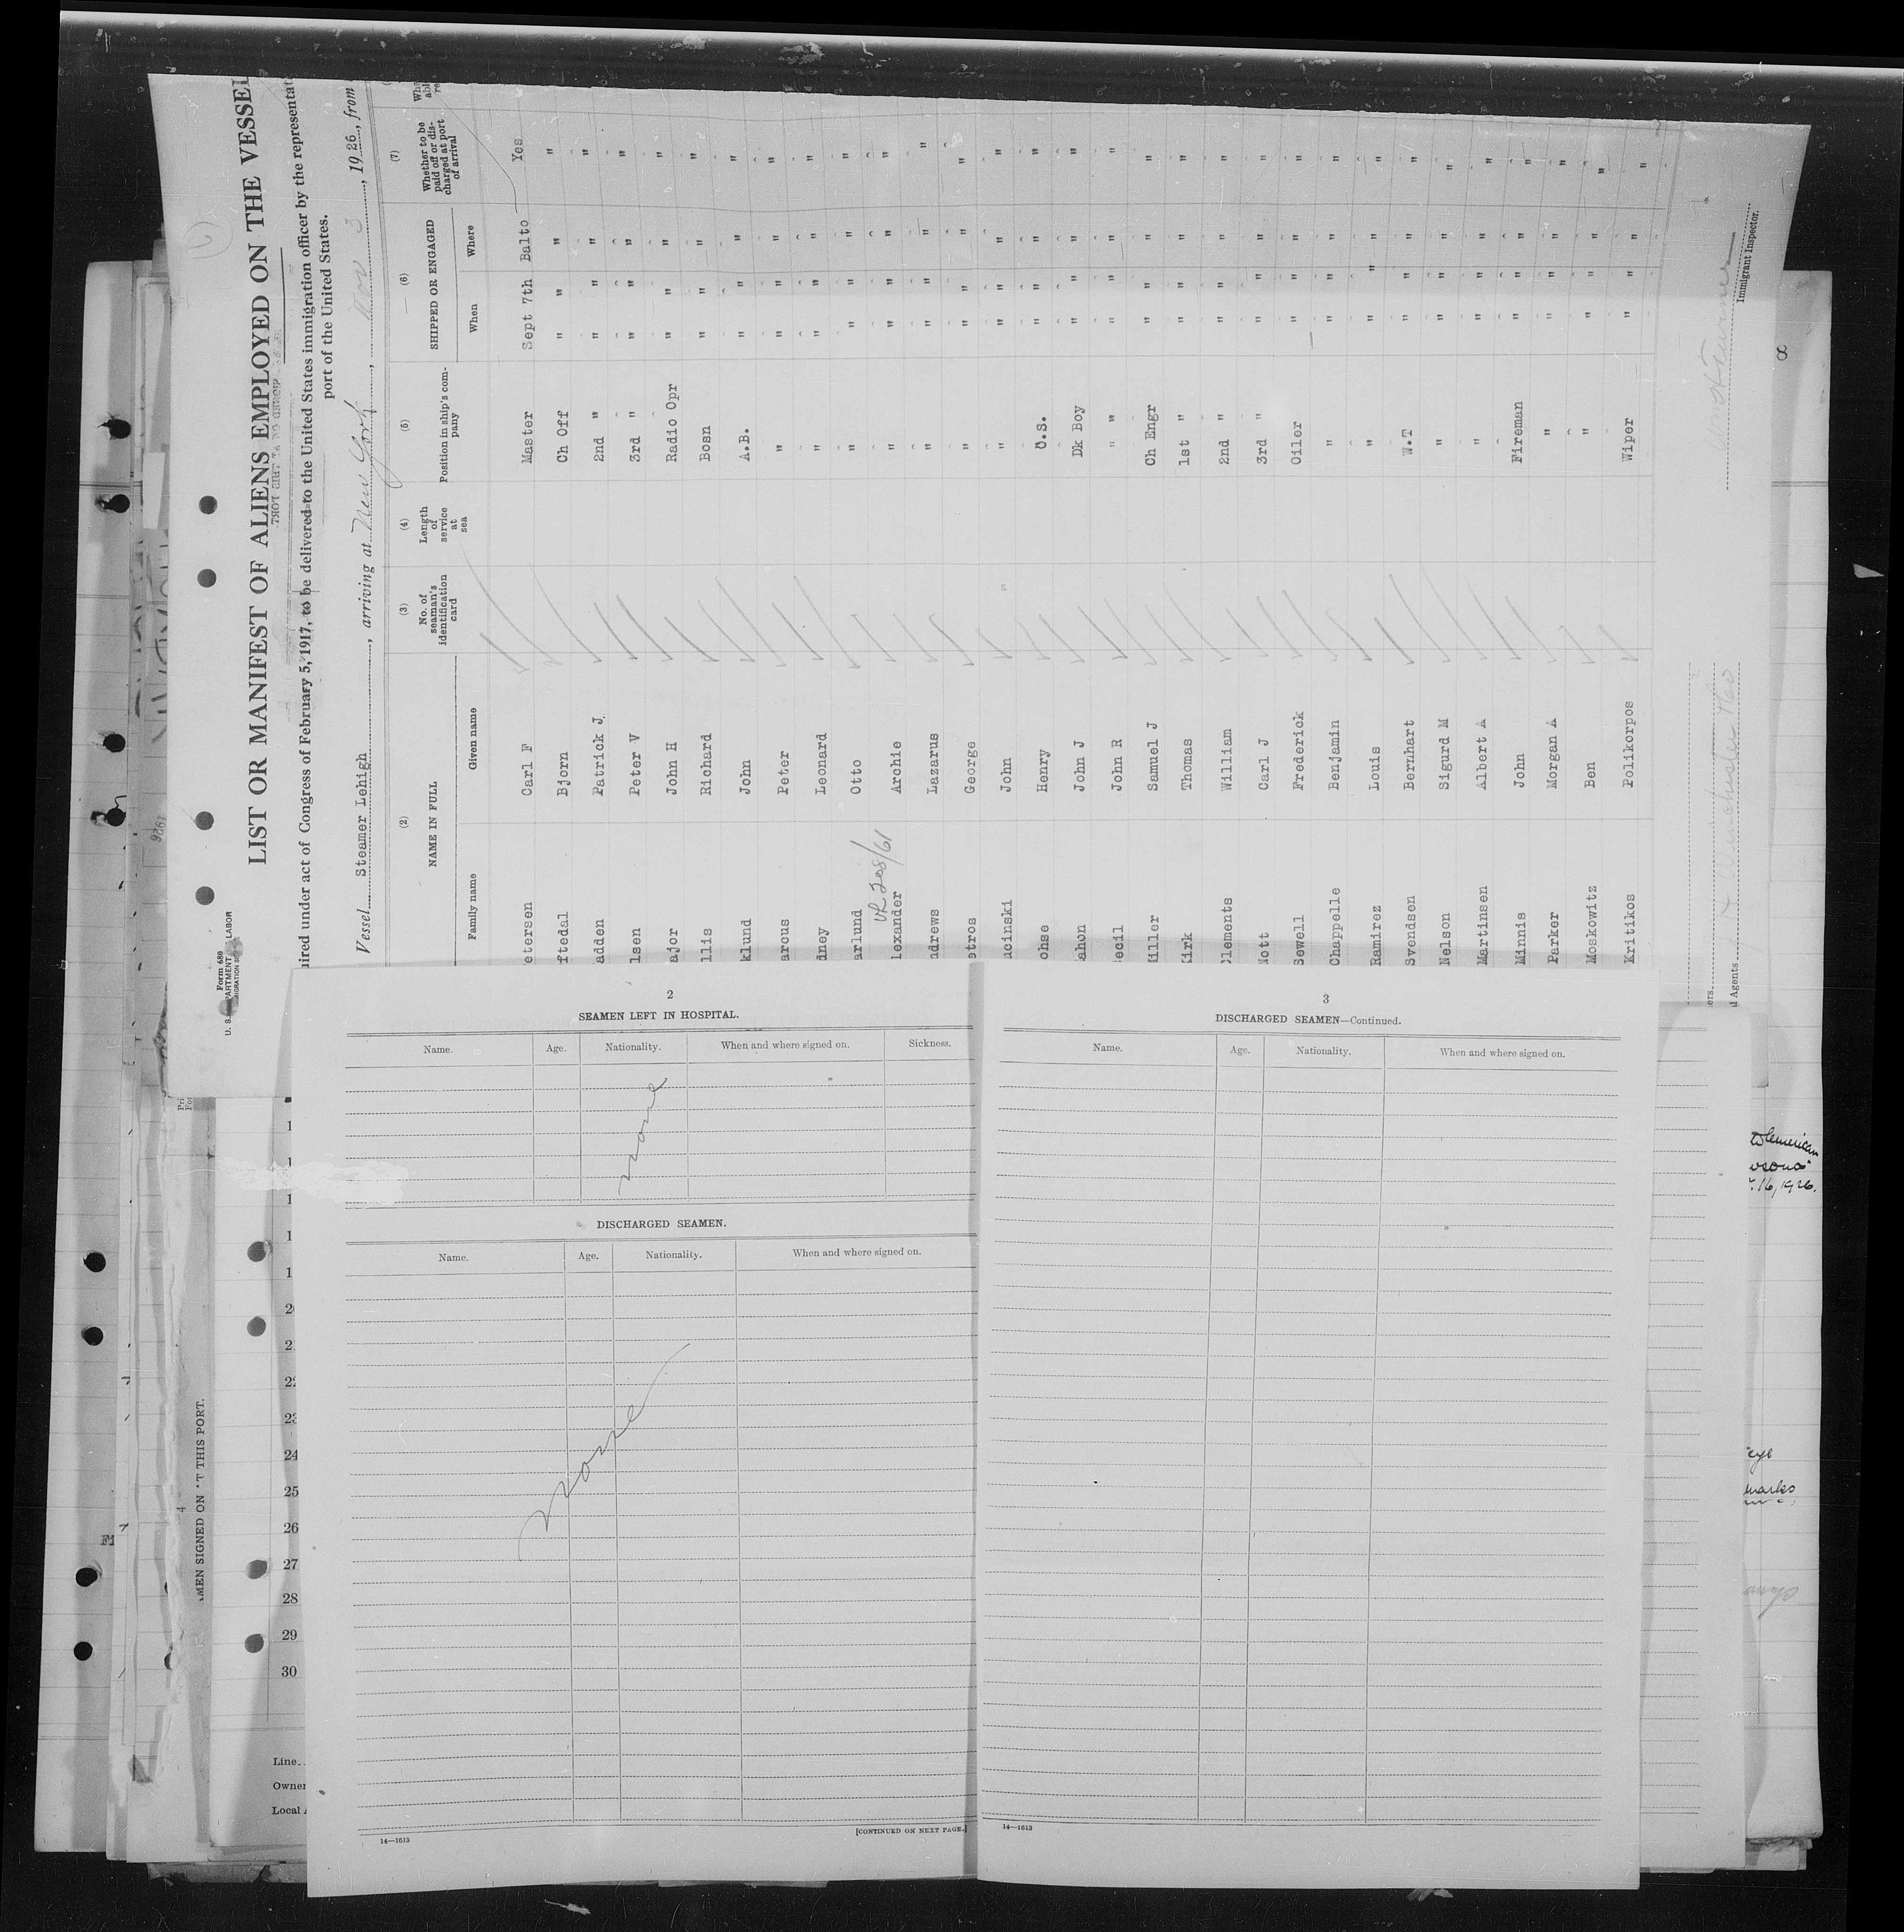 Form 689
U. S. DEPARTMENT LABOR
IMMIGRATION
LIST OR MANIFEST OF ALIENS EMPLOYED ON THE VESSEL
uired under act of Congress of February 5, 1917, to be delivered to the United States immigration officer by the representat
port of the United States.
Vessel Steamer Lehigh, arriving at New York, Nov 3, 1926, from
(2) (3) (4) (5) (6) (7)
NAME IN FULL No. of seaman's identification card Length of service at sea Position in ship's company SHIPPED OR ENGAGED Whether to be paid off or discharged at port of arrival
Family name Given name When Where
etersen Carl F Master Sept 7th Balto Yes
ftedal Bjorn Ch Off " " " "
adden Patrick J. 2nd " " " " "
lsen Peter V 3rd " " " " "
ajor John H Radio Opr " " " "
llis Richard Bosn " " " "
klund John A.B. " " " "
arcus Peter " " " " "
dney Leonard " " " " "
arlund Otto " " " " "
208/61
lexander Archie " " " " "
ndrews Lazarus " " " " "
etros George " " " " "
ucinski John " " " " "
ohse Henry O.S. " " " "
ahon John J Dk Boy " " " "
ecil John R " " " " " "
iller Samuel J Ch Engr " " " "
irk Thomas 1st " " " " "
Clements William 2nd " " " " "
Nott Carl J 3rd " " " " "
Sewell Frederick Oiler " " " "
Chappelle Benjamin " " " " "
Ramirez Louis " " " " "
Svendsen Bernhart W.T " " " "
Nelson Sigurd M " " " " "
Martinsen Albert A " " " " "
Minnis John Fireman " " " "
Parker Morgan A " " " " "
Moskowitz Ben " " " " "
Kritikos Polikorpos Wiper " " " "
Immigrant Inspector.
ers
Agents
8
2
SEAMEN LEFT IN HOSPITAL.
Name. Age. Nationality. When and where signed on. Sickness.
none
DISCHARGED SEAMEN.
Name. Age. Nationality. When and where signed on.
none
14—1613
[CONTINUED ON NEXT PAGE.]
3
DISCHARGED SEAMEN—Continued.
Name. Age. Nationality. When and where signed on.
14—1613
4
MEN SIGNED ON THIS PORT.
20
21
22
23
24
25
26
27
28
29
30
Line
Owner
Local
American
16, 1926.
marks